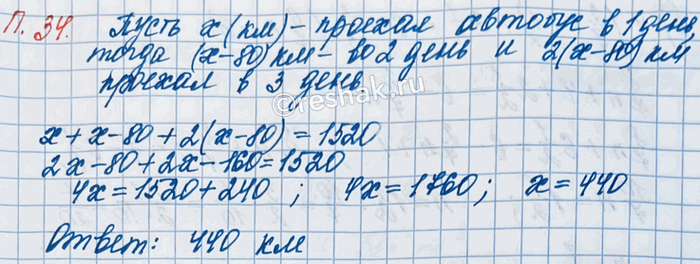 П. 34. Пусть x (км) - проехал автобус в 1 день,
тогда (x-80) км - во 2 день и 2(x-80) км
проехал в 3 день.
©reshak.ru
x + x - 80 + 2(x-80) = 1520
2x - 80 + 2x - 160 = 1520
4x = 1520 + 240 ; 4x = 1760; x = 440
Ответ: 440 км